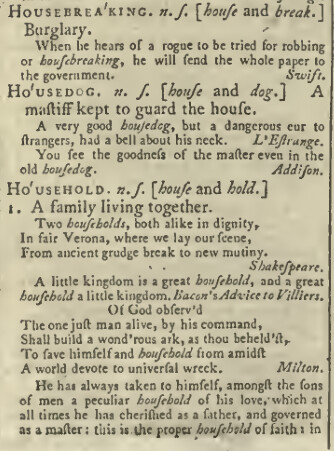 HOUSEBREA'KING. n. ſ. [houſe and break.]
Burglary.
When he hears of a rogue to be tried for robbing
or houſebreaking, he will ſend the whole paper to
the government. Swift.
HO'USEDOG. n. ſ. [houſe and dog.] A
maſtiff kept to guard the houſe.
A very good houſedog, but a dangerous cur to
ſtrangers, had a bell about his neck. L'Eſtrange.
You ſee the goodneſs of the maſter even in the
old houſedog. Addiſon.
HO'USEHOLD. n. ſ. [houſe and hold.]
1. A family living together.
Two houſeholds, both alike in dignity,
In fair Verona, where we lay our ſcene,
From ancient grudge break to new mutiny.
Shakeſpeare.
A little kingdom is a great houſehold, and a great
houſehold a little kingdom. Bacon's Advice to Villiers.
Of God obſerv'd
The one juſt man alive, by his command,
Shall build a wond'rous ark, as thou beheld'ſt,
To ſave himſelf and houſehold from amidſt
A world devote to univerſal wreck. Milton.
He has always taken to himſelf, amongſt the ſons
of men a peculiar houſehold of his love, which at
all times he has cheriſhed as a father, and governed
as a maſter: this is the proper houſehold of faith: in